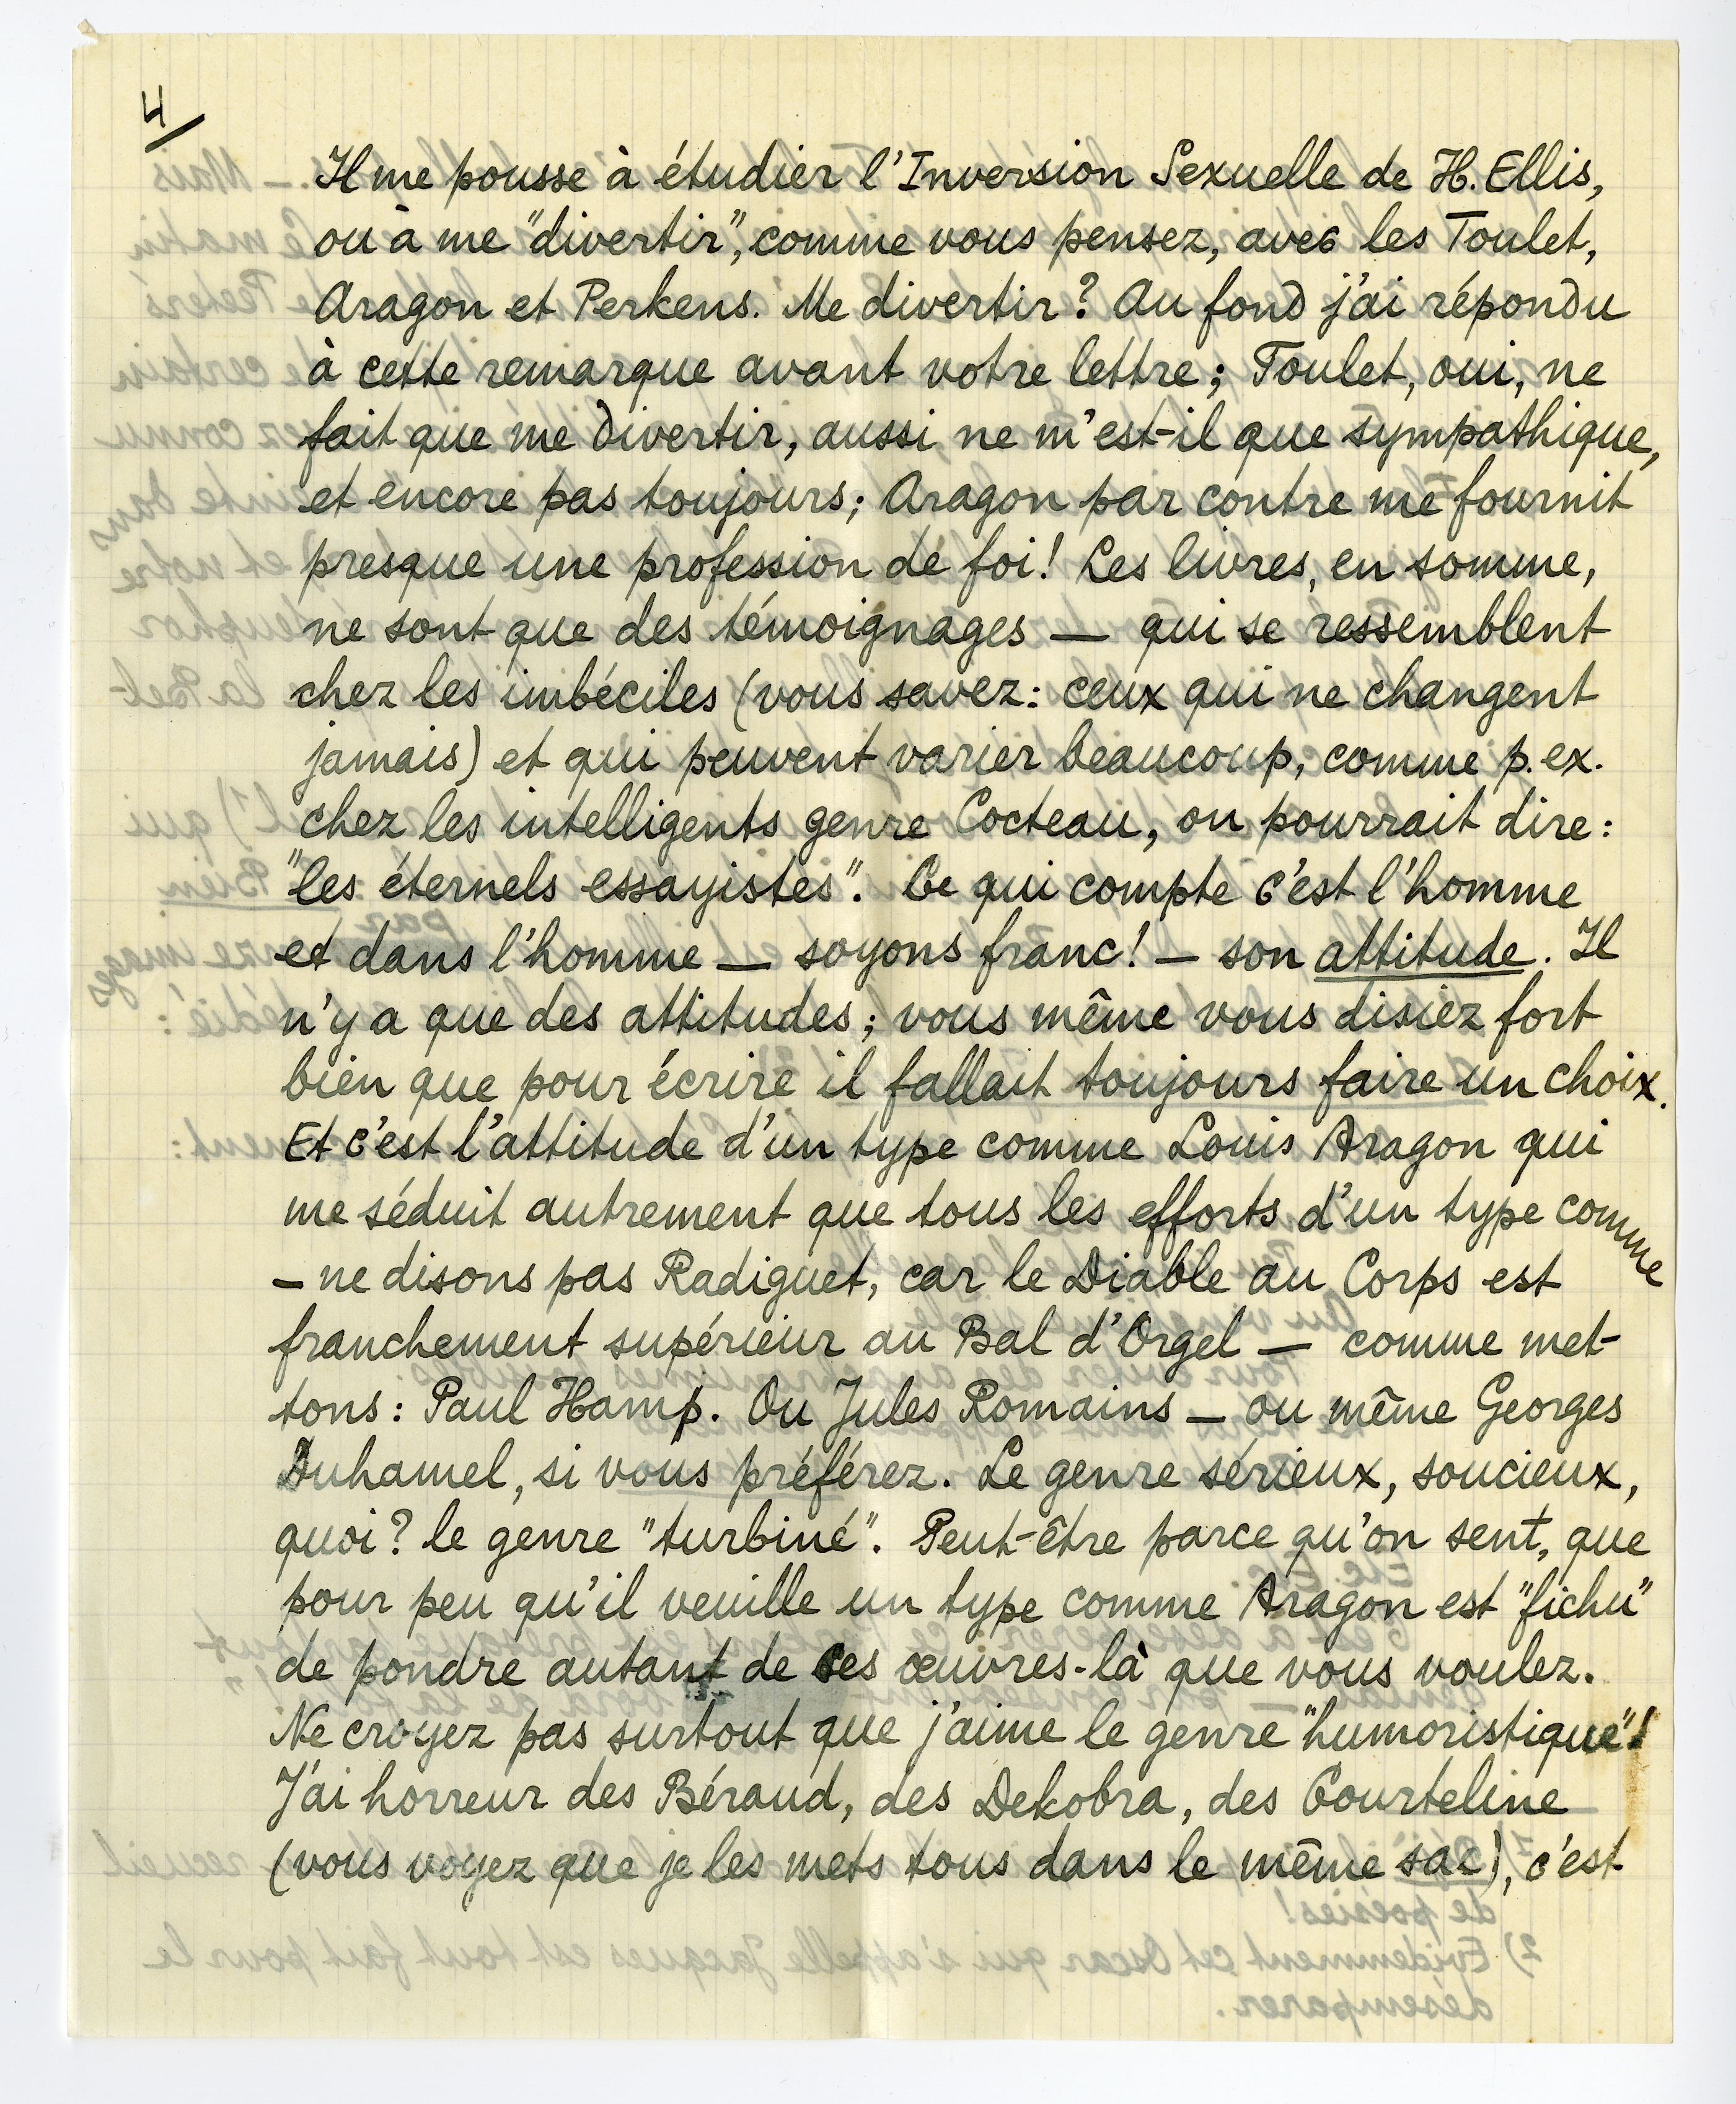 4/
Il me pousse à étudier l'Inversion Sexuelle de H. Ellis,
ou à me "divertir", comme vous pensez, avec les Toulet,
Aragon et Perkens. Me divertir? Au fond j'ai répondu
à cette remarque avant votre lettre; Toulet, oui, ne
fait que me divertir, aussi ne m'est-il que sympathique,
et encore pas toujours; Aragon par contre me fournit
presque une profession de foi! Les livres, en somme,
ne sont que des témoignages — qui se ressemblent
chez les imbéciles (vous savez: ceux qui ne changent
jamais) et qui peuvent varier beaucoup, comme p. ex.
chez les intelligents genre Cocteau, on pourrait dire:
"les éternels essayistes". Ce qui compte c'est l'homme
et dans l'homme — soyons franc! — son attitude. Il
n'y a que des attitudes; vous même vous disiez fort
bien que pour écrire il fallait toujours faire un choix.
Et c'est l'attitude d'un type comme Louis Aragon qui
me séduit autrement que tous les efforts d'un type comme
— ne disons pas Radiguet, car le Diable au Corps est
franchement supérieur au Bal d'Orgel — comme met-
tons: Paul Hamp. Ou Jules Romains — ou même Georges
Duhamel, si vous préférez. Le genre sérieux, soucieux,
quoi? le genre "turbiné". Peut-être parce qu'on sent, que
pour peu qu'il veuille un type comme Aragon est "fichu"
de pondre autant de ces œuvres-là que vous voulez.
Ne croyez pas surtout que j'aime le genre "humoristique"!
J'ai horreur des Béraud, des Dekobra, des Courteline
(vous voyez que je les mets tous dans le même sac), c'est